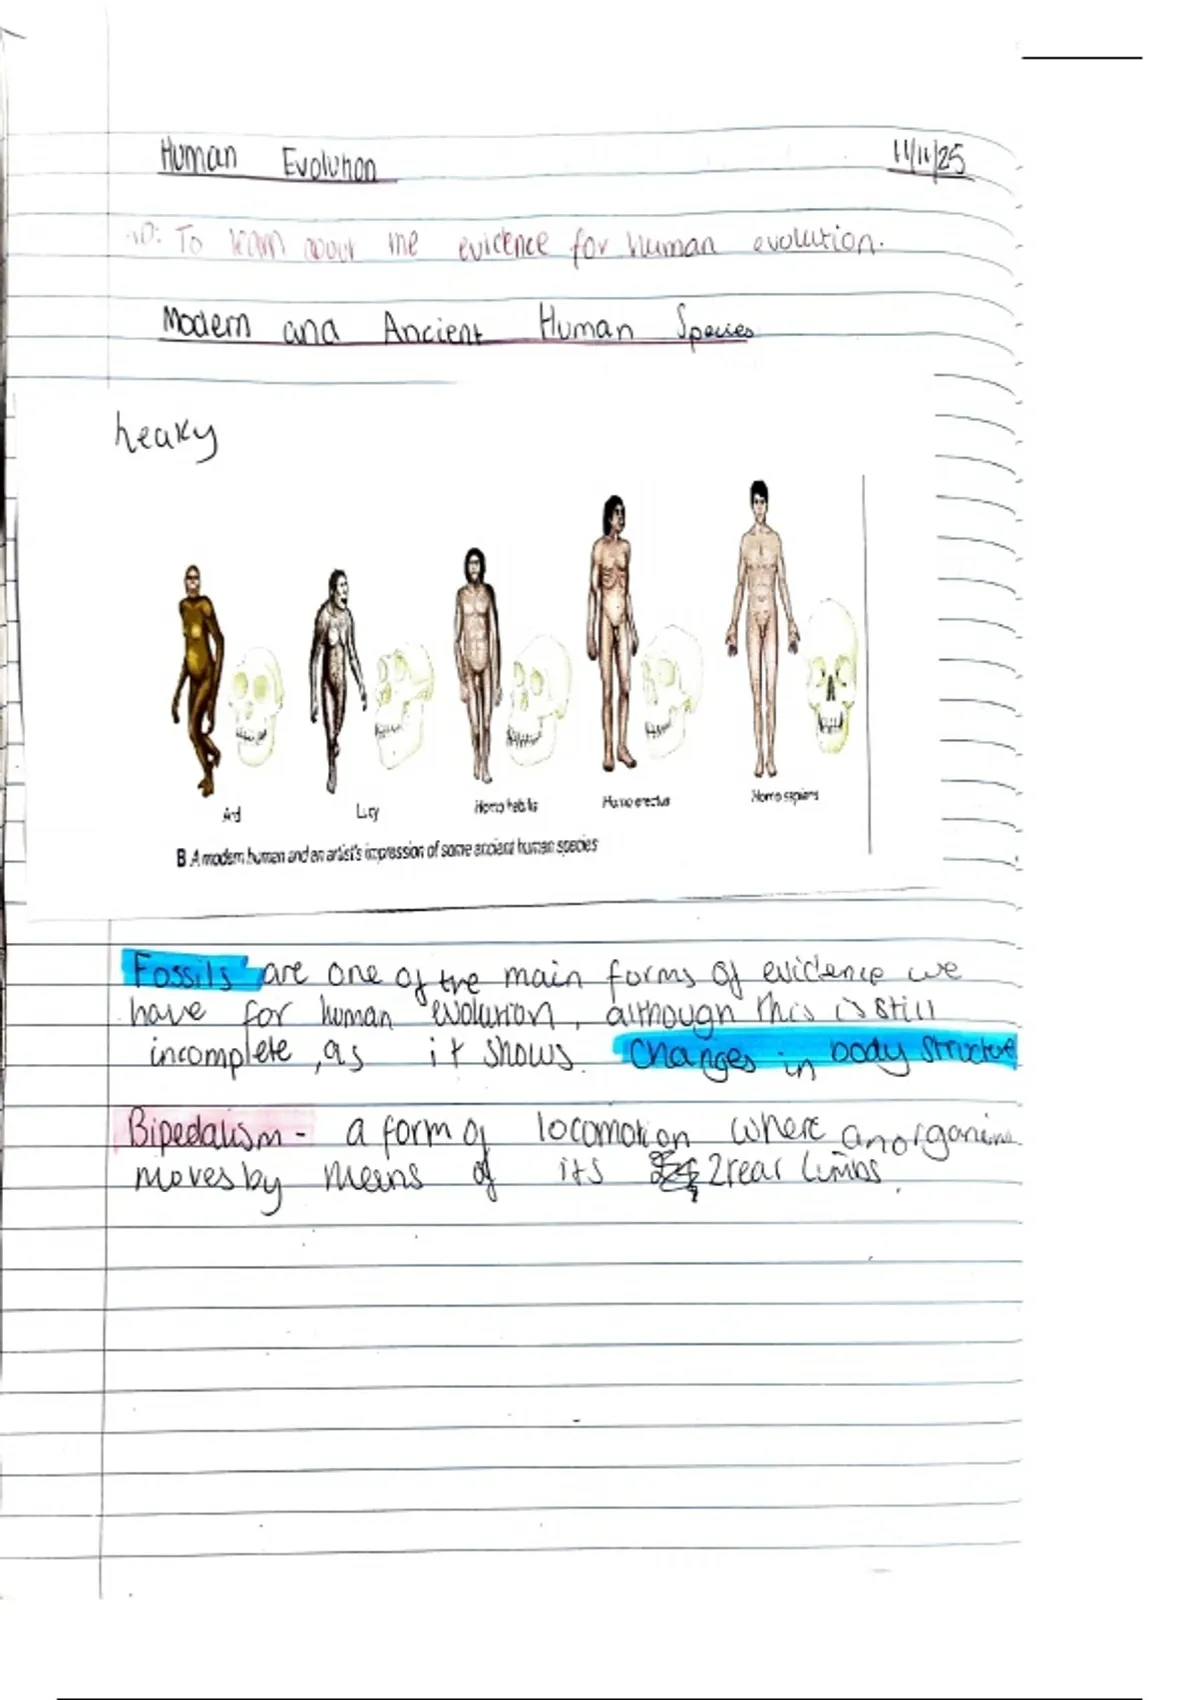 Human Evolution 11/11/25
To learn about the evidence for human evolution.
Modern and Ancient Human Species
heaky
Ardi Lucy Homo habilis Homo erectus Homo sapiens
B A modern human and an artist's impression of some ancient human species
Fossils are one of the main forms of evidence we
have for human evolution, although this is still
incomplete, as it shows changes in body structure
Bipedalism - a form of locomotion where an organism
moves by means of its 2 rear limbs.